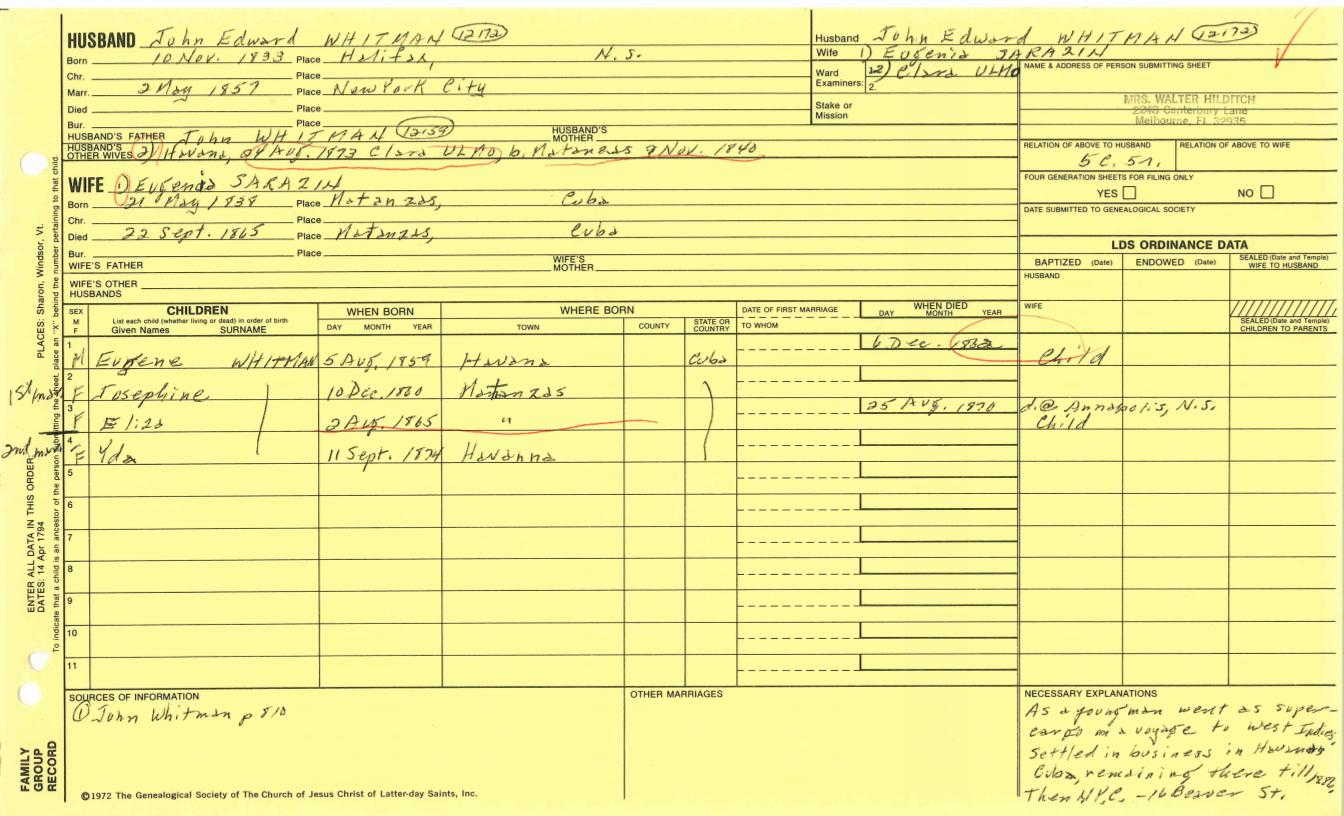 HUSBAND John Edward WHITMAN (12172)
Born 10 Nov. 1833 Place Halifax, N.S.
Chr. Place
Marr. 2 May 1857 Place New York City
Died Place
Bur. Place
HUSBAND'S FATHER John WHITMAN (12159) HUSBAND'S MOTHER
HUSBAND'S OTHER WIVES 2) Havana, Aug. 1873 Clara ULMO, b. Matanass 9 Nov. 1840
WIFE 1) Eugenia SARAZIN
Born 21 May 1838 Place Matanzas, Cuba
Chr. Place
Died 22 Sept. 1865 Place Matanzas, Cuba
Bur. Place
WIFE'S FATHER WIFE'S MOTHER
WIFE'S OTHER HUSBANDS
Husband John Edward WHITMAN (12172)
Wife 1) Eugenia SARAZIN
Ward Examiners: 1. 2) Clara ULMO
2.
Stake or Mission
NAME & ADDRESS OF PERSON SUBMITTING SHEET
MRS. WALTER HILDITCH
2243 Canterbury Lane
Melbourne, FL 32935
RELATION OF ABOVE TO HUSBAND RELATION OF ABOVE TO WIFE
5C. 5r.
FOUR GENERATION SHEETS FOR FILING ONLY
YES NO
DATE SUBMITTED TO GENEALOGICAL SOCIETY
LDS ORDINANCE DATA
BAPTIZED (Date) ENDOWED (Date) SEALED (Date and Temple) WIFE TO HUSBAND
HUSBAND
WIFE
SEALED (Date and Temple) CHILDREN TO PARENTS
SEX M F
CHILDREN
List each child (whether living or dead) in order of birth
Given Names SURNAME
WHEN BORN
DAY MONTH YEAR
WHERE BORN
TOWN COUNTY STATE OR COUNTRY
DATE OF FIRST MARRIAGE
TO WHOM
WHEN DIED
DAY MONTH YEAR
1 M Eugene WHITMAN 5 Aug. 1859 Havana Cuba 6 Dec. Child
1st mar
2 F Josephine 10 Dec. 1860 Matanzas
3 F Eliza 2 Aug. 1865 " 25 Aug. 1870 d.@ Annapolis, N.S.
Child
2nd mar
4 F Yda 11 Sept. 1874 Havanna
5
6
7
8
9
10
11
SOURCES OF INFORMATION
① John Whitman p 810
OTHER MARRIAGES
NECESSARY EXPLANATIONS
As a young man went as super-
cargo on a voyage to West Indies,
Settled in business in Havana,
Cuba, remaining there till
Then N.Y.C. - 16 Beaver St.
©1972 The Genealogical Society of The Church of Jesus Christ of Latter-day Saints, Inc.
FAMILY GROUP RECORD
ENTER ALL DATA IN THIS ORDER
DATES: 14 Apr 1794
PLACES: Sharon, Windsor, Vt.
To indicate that a child is an ancestor of the person submitting the sheet, place an "X" behind the number pertaining to that child